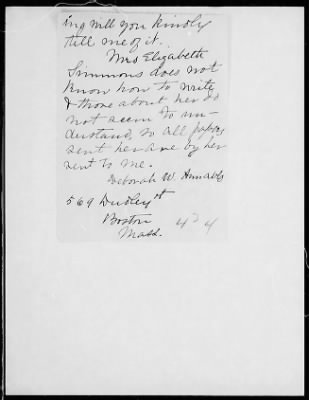 ing will you kindly
tell me of it.
Mrs Elizabeth
Simmons does not
know how to write
& those about her do
not seem to un-
derstand, so all papers
sent her are by her
sent to me.
Deborah W.
569 Dudley st
Boston
Mass.